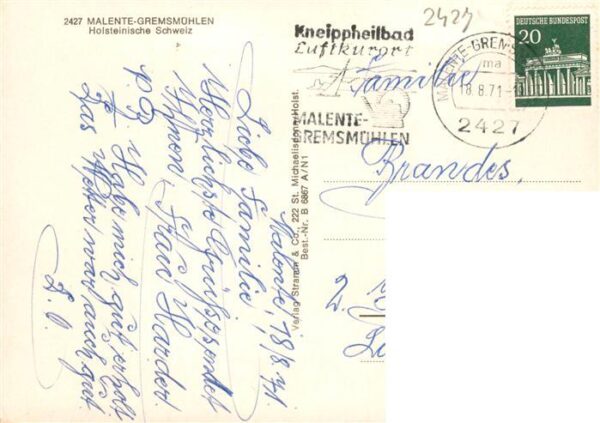 2427 MALENTE-GREMSMÜHLEN
Holsteinische Schweiz
Malente, 18/8.71.
Liebe Familie
Herzlichste Grüsse sendet
Ihnen, Frau Harder.
P.B. Habe mich gut erholt
Das Wetter war auch gut
D. O.
Verlag Straman & Co., 222 St. Michaelisdonn/Holst.
Best.-Nr. B 6867 A/N1
2427
Kneippheilbad
Luftkurort
MALENTE-
GREMSMÜHLEN
MALENTE-GREMS
ma
18.8.71-
2427
DEUTSCHE BUNDESPOST
20
Familie
Brandes,
2.